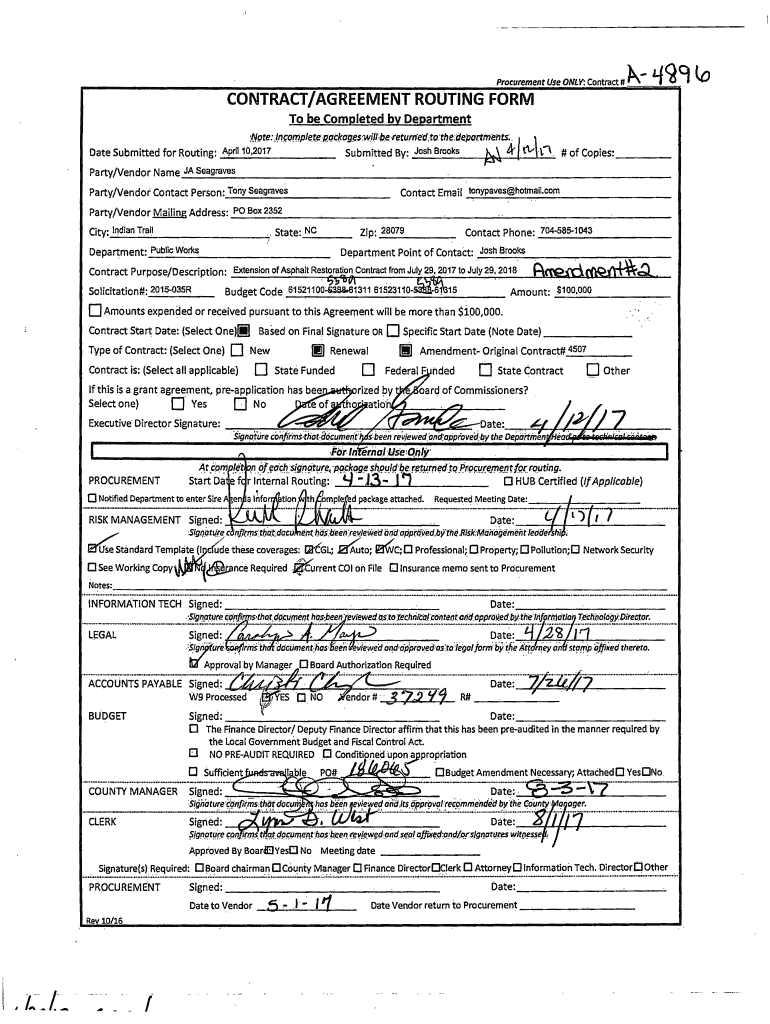 Procurement Use ONLY: Contract # A-4896
CONTRACT/AGREEMENT ROUTING FORM
To be Completed by Department
Note: Incomplete packages will be returned to the departments.
Date Submitted for Routing: April 10,2017 Submitted By: Josh Brooks 4/12/17 # of Copies:
Party/Vendor Name JA Seagraves
Party/Vendor Contact Person: Tony Seagraves Contact Email tonypaves@hotmail.com
Party/Vendor Mailing Address: PO Box 2352
City: Indian Trail State: NC Zip: 28079 Contact Phone: 704-585-1043
Department: Public Works Department Point of Contact: Josh Brooks
Contract Purpose/Description: Extension of Asphalt Restoration Contract from July 29, 2017 to July 29, 2018 Amendment #2
5389 5389
Solicitation#: 2015-035R Budget Code 61521100-5388-61311 61523110-5388-61615 Amount: $100,000
Amounts expended or received pursuant to this Agreement will be more than $100,000.
Contract Start Date: (Select One) Based on Final Signature OR Specific Start Date (Note Date)
Type of Contract: (Select One) New Renewal Amendment- Original Contract# 4507
Contract is: (Select all applicable) State Funded Federal Funded State Contract Other
If this is a grant agreement, pre-application has been authorized by the Board of Commissioners?
Select one) Yes No Date of authorization
Executive Director Signature: Date: 4/12/17
Signature confirms that document has been reviewed and approved by the Department Head as to technical content
For Internal Use Only
At completion of each signature, package should be returned to Procurement for routing.
PROCUREMENT Start Date for Internal Routing: 4-13-17 HUB Certified (If Applicable)
Notified Department to enter Sire Agenda information with completed package attached. Requested Meeting Date:
RISK MANAGEMENT Signed: Date: 4/17/17
Signature confirms that document has been reviewed and approved by the Risk Management leadership.
Use Standard Template (Include these coverages: CGL; Auto; WC; Professional; Property; Pollution; Network Security
See Working Copy No Insurance Required Current COI on File Insurance memo sent to Procurement
Notes:
INFORMATION TECH Signed: Date:
Signature confirms that document has been reviewed as to technical content and approved by the Information Technology Director.
LEGAL Signed: Date: 4/28/17
Signature confirms that document has been reviewed and approved as to legal form by the Attorney and stamp affixed thereto.
Approval by Manager Board Authorization Required
ACCOUNTS PAYABLE Signed: Date: 7/26/17
W9 Processed YES NO Vendor # 37249 R#
BUDGET Signed: Date:
The Finance Director/ Deputy Finance Director affirm that this has been pre-audited in the manner required by
the Local Government Budget and Fiscal Control Act.
NO PRE-AUDIT REQUIRED Conditioned upon appropriation
Sufficient funds available PO# Budget Amendment Necessary; Attached Yes No
COUNTY MANAGER Signed: Date: 8-3-17
Signature confirms that document has been reviewed and its approval recommended by the County Manager.
CLERK Signed: Lynn G. West Date: 8/1/17
Signature confirms that document has been reviewed and seal affixed and/or signatures witnessed.
Approved By Board Yes No Meeting date
Signature(s) Required: Board chairman County Manager Finance Director Clerk Attorney Information Tech. Director Other
PROCUREMENT Signed: Date:
Date to Vendor 5-1-17 Date Vendor return to Procurement
Rev 10/16